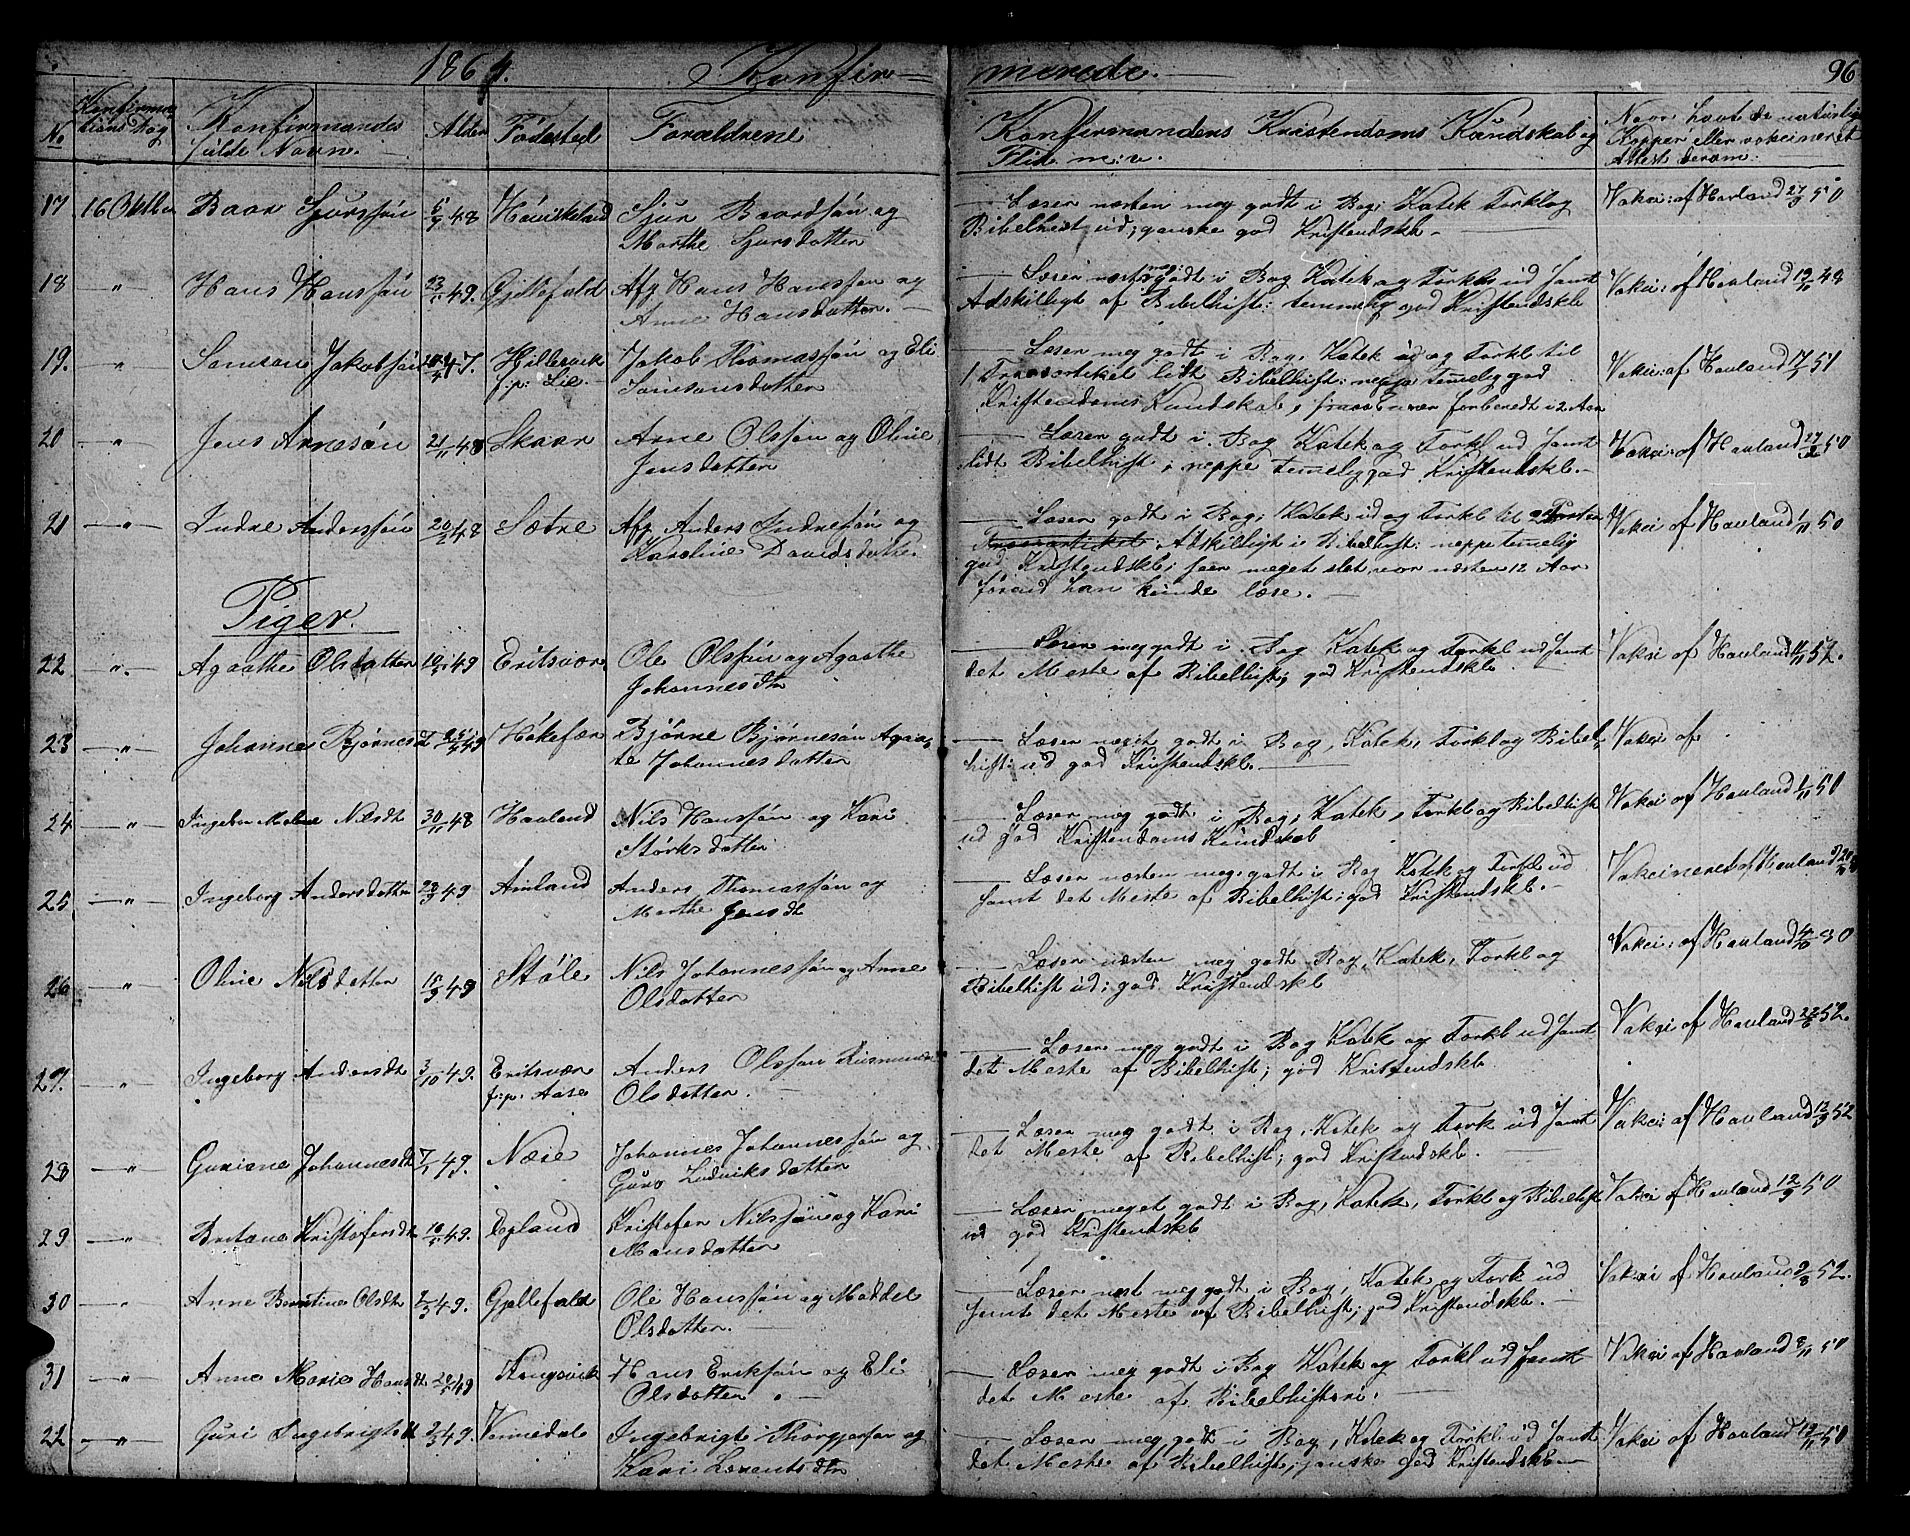 1864. Konfirmerede. 96
No Konfirmations Dag Konfirmandes fulde Navn. Alder Födested Forældrene Konfirmandens Kristendoms Kundskab og Flid m: v. Naar havt de naturlig Kopper eller vakcineret Attest derom.
17 16 Oktbr Baar Sjursſön 5/9 48 Sjur Baardsſön og Marthe Sjursdatter
Læser næsten meg godt i Bog, Katek Forkl og Bibelhist ud; ganske god Kristendskb - Vakci: af Havland 27/9 50
18 " Hans Hansſön 23/1 49. Gjillefald Afg Hans Hansſen og Anne Hansdatter. -
Læser næst meg: godt i Bog Katek og Forkl: ud ſamt Adskilligt af Bibelhiſt: temmelig god Kriſtendskb Vakci: af Havland 19/11 48
19. " Samson Jakobſön 47. Hillesvik f: p: Lie - Jakob Thomasſön og Eli Samsonsdatter
Læser meg godt i Bog, Katek ud og Forkl til 1 Troesartikel lidt Bibelhiſt: neppe temelig god Kriſtendoms Kundskab, forberedt i 2 Aar Vakci: af Havland 17/7 51
20 " Jens Arnesön 21/11 48 Skaar Arne Olsſön og Oline Jensdatter
Læser godt i Bog Katek og Forkl ud ſamt lidt Bibelhiſt; neppe temelig god Kriſtendskb. - Vakci: af Havland 27/9 50
21 " Indre Andersſön 20/2 48 Sætre Afg Anders Indresſön og Karoline Davidsdatter
Læser godt i Bog, Katek ud og Forkl til 2 Parten Troesartikel. Adskilligt i Bibelhiſt: neppe temelig god Kriſtendskb; ſeer meget slet, var næsten 12 Aar förend han kunde læse. - Vakci af Havland 1/11 50
Piger.
22 " Agaathe Olsdatter 10/1 49 Eritsvær Ole Olsſön og Agaathe Johannesdtr
Læser meg godt i Bog Katek og Forkl ud ſamt det Meste af Bibelhiſt; god Kriſtendskb. Vakci af Havland 11/11 52.
23 " Johanne Björnesd Björne Björnesön Agaate Johannesdatter
Læser meget godt i Bog, Katek, Forkl og Bibelhiſt: ud god Kriſtendskb. Vakci af
24 " Ingebor Malene Nilsdt 30/11 48 Havland Nils Hansſön og Kari Störksdatter
Læser meg godt i Bog, Katek, Forkl og Bibelhiſt ud god Kriſtendoms Kundskab Vakci af Havland 1/11 50
25 " Ingeborg Andersdatter 23/3 49 Amland Anders Thomasſön og Marthe Jensdt
Læser næsten meg: godt i Bog Katek og Forkl ud ſamt det Meste af Bibelhiſt; god Kriſtendskb. - Vakcineret af Havland
26 " Oline Nilsdatter 15/9 49 Stöle Nils Johannesſön og Anne Olsdatter
Læser næsten meg godt Bog, Katek, Forkl og Bibelhiſt ud; god Kriſtendskb Vakci: af Havland 50
27. " Ingeborg Andersdt 3/10 49. Eritsvær f: p: Aase Anders Olsſøn Olsdatter. -
Læser meg godt i Bog Katek og Forkl ud ſamt det Meste af Bibelhiſt; god Kriſtendskb. Vakci af Havland 52.
28 " Guriene Johannesdt 7/1 49. Næie Johannes Johannesſön og Guro Ludviksdatter
Læser meg godt i Bog, Katek og Fork ud ſamt det Meste af Bibelhiſt; god Kriſtendskb. Vakci: af Havland 52
29 " Britane Kriſtoferdt 49. Epland Kriſtofer Nilsſön og Kari Mansdatter
Læser meget godt i Bog, Katek, Forkl og Bibelhiſt ud god Kriſtendskb Vakci af Havland 12/9 50
30 " Anne Berntine Olsdt 49. Gjellefald Ole Hansſön og Maddel Olsdatter. -
Læser næst meg godt i Bog, Katek og Fork ud ſamt det Meste af Bibelhiſt; god Kriſtendskb. - Vakci af Havland 52.
31 " Anne Marie Hansdt 49 Kongsvik Hans Eriksſön og Eli Olsdatter. -
Læser meg godt i Bog Katek og Forkl ud ſamt det Meste af Bibelhiſtori. Vakci af Havland 8/11 50
22 " Guri Ingebrigtsd 49. Vennedale Ingebrigt Thorgjerſen og Kari Lorentsdtr
Læser meg godt i Bog, Katek og Forkl ud ſamt det Meste af Bibelhiſt; ganske god Kriſtendskb - Vakci af Havland 50